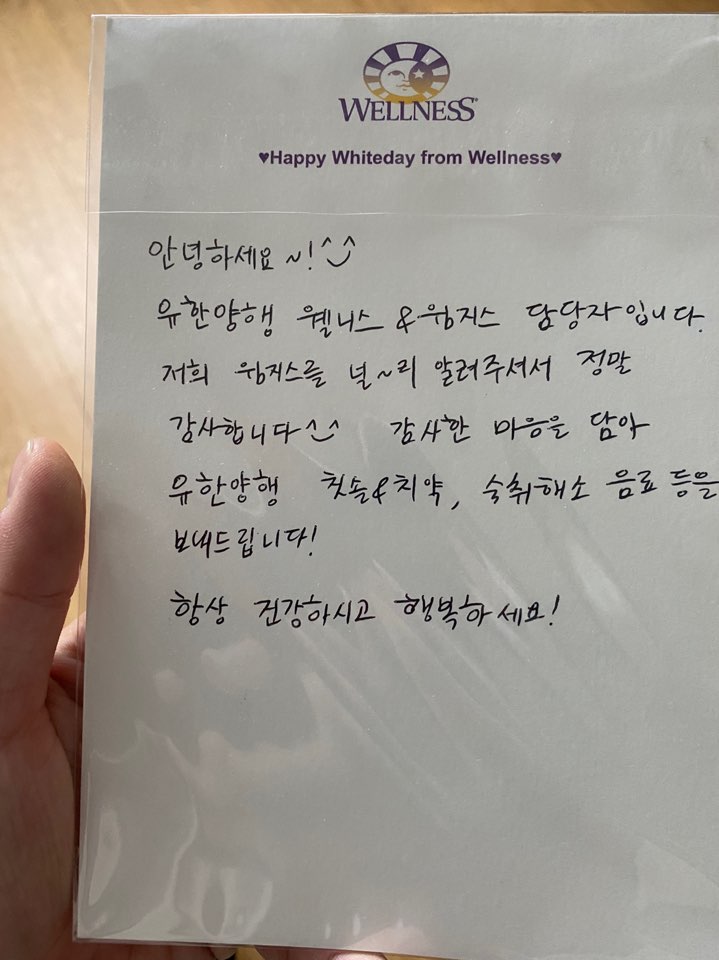 WELLNESS
♥Happy Whiteday from Wellness♥
안녕하세요~!^^
유한양행 웰니스 & 윔지스 담당자입니다.
저희 윔지스를 널~리 알려주셔서 정말
감사합니다^^ 감사한 마음을 담아
유한양행 칫솔&치약, 숙취해소 음료 등을
보내드립니다!
항상 건강하시고 행복하세요!